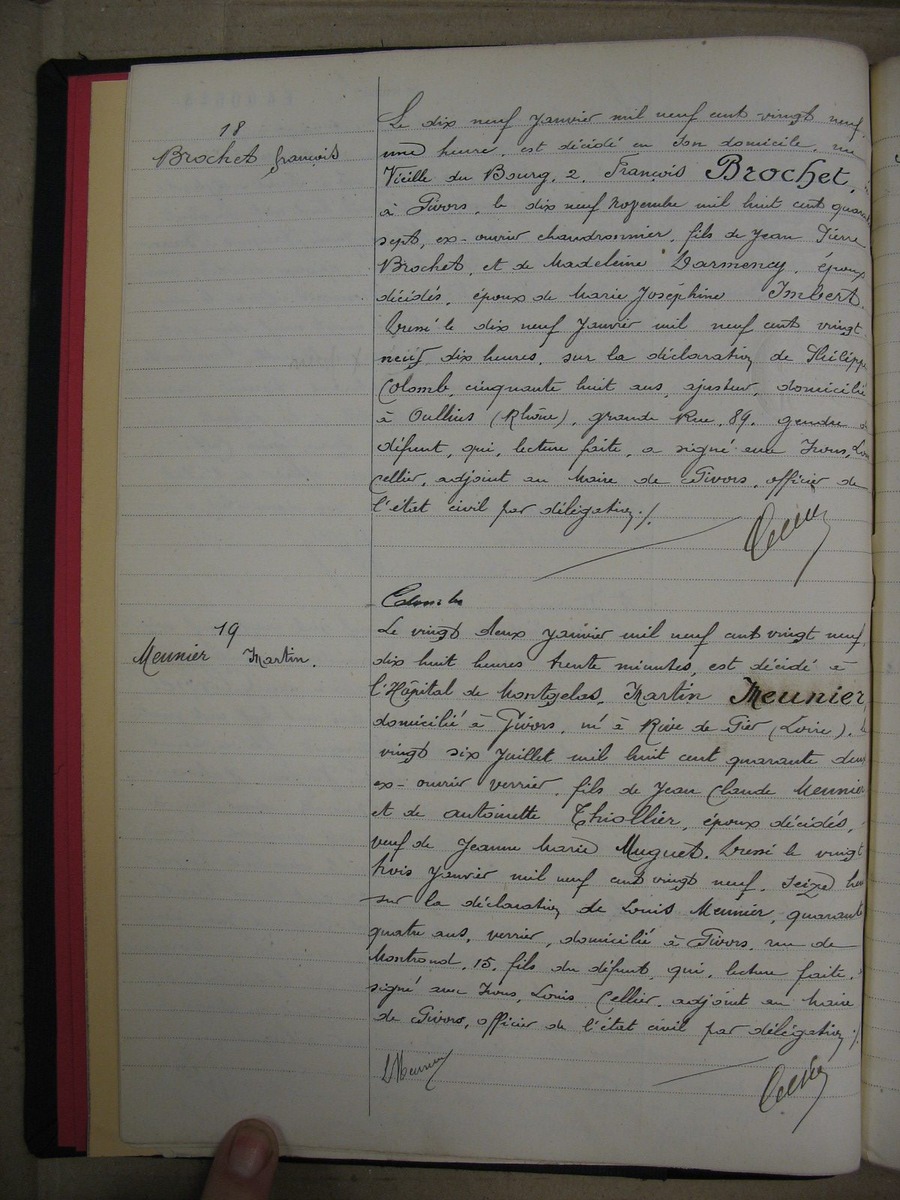 18
Brochet françois
Le dix neuf Janvier mil neuf cent vingt neuf,
une heure, est décédé en son domicile, rue
Vieille du Bourg, 2, François Brochet,
à Givors, le dix neuf Novembre mil huit cent quarante
sept, ex-ouvrier chaudronnier, fils de Jean Pierre
Brochet, et de Madeleine Darmency, époux
décédés, époux de Marie Joséphine Imbert.
Dressé le dix neuf Janvier mil neuf cent vingt
neuf, dix heures, sur la déclaration de Philippe
Colomb, cinquante huit ans, ajusteur, domicilié
à Oullins (Rhône), grande Rue, 89, gendre du
défunt, qui, lecture faite, a signé avec Nous, Louis
Cellier, adjoint au Maire de Givors, officier de
l'état civil par délégation ./.
19
Meunier Martin.
Le vingt deux Janvier mil neuf cent vingt neuf,
dix huit heures trente minutes, est décédé à
l'Hôpital de Montgelas, Martin Meunier
domicilié à Givors, né à Rive de Gier (Loire), le
vingt six Juillet mil huit cent quarante deux
ex-ouvrier verrier, fils de Jean Claude Meunier
et de Antoinette Thiollier, époux décédés,
veuf de Jeanne Marie Muguet. Dressé le vingt
trois Janvier mil neuf cent vingt neuf, seize heu
sur la déclaration de Louis Meunier, quarante
quatre ans, verrier, domicilié à Givors, rue de
Montrond, 15, fils du défunt, qui, lecture faite,
signé avec Nous, Louis Cellier, adjoint au Maire
de Givors, officier de l'état civil par délégation ./.
LMeunier